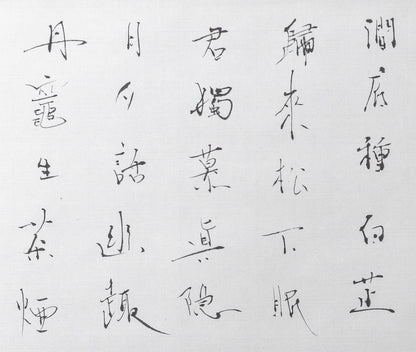 澗底種白芷
歸來松下眠
君獨慕眞隱
月夕話幽趣
丹竈生茶煙